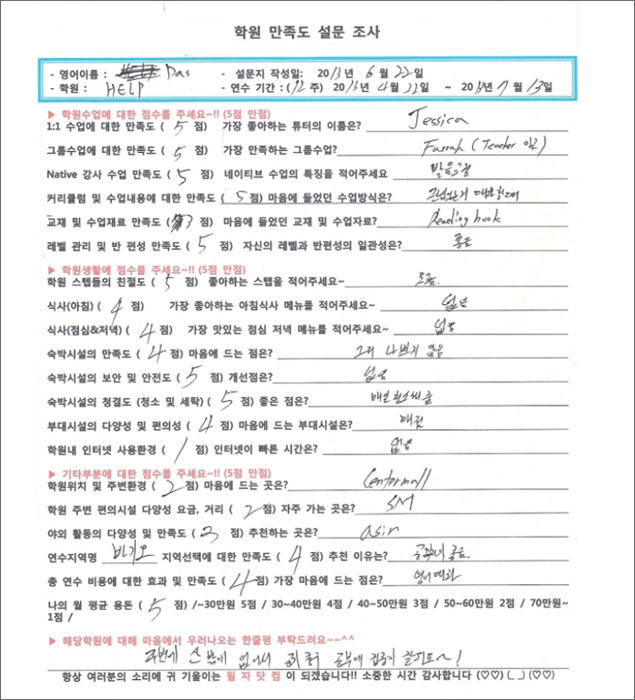 학원 만족도 설문 조사
- 영어이름 : Das - 설문지 작성일: 2013년 6월 22일
- 학원 : HELP - 연수 기간 : (12 주) 2013년 4월 22일 ~ 2013년 7월 13일
▶ 학원수업에 대한 점수를 주세요~!! (5점 만점)
1:1 수업에 대한 만족도 ( 5 점) 가장 좋아하는 튜터의 이름은? Jessica
그룹수업에 대한 만족도 ( 5 점) 가장 만족하는 그룹수업? Farrah (Teacher 임)
Native 강사 수업 만족도 ( 5 점) 네이티브 수업의 특징을 적어주세요 발음교정
커리큘럼 및 수업내용에 대한 만족도 ( 5 점) 마음에 들었던 수업방식은?
교재 및 수업재료 만족도 ( 3 점) 마음에 들었던 교재 및 수업자료? Reading book
레벨 관리 및 반 편성 만족도 ( 5 점) 자신의 레벨과 반편성의 일관성은? 좋음
▶ 학원생활에 점수를 주세요~!! (5점 만점)
학원 스텝들의 친절도 ( 5 점) 좋아하는 스텝을 적어주세요~ 모름.
식사(아침) ( 4 점) 가장 좋아하는 아침식사 메뉴를 적어주세요~ 없음
식사(점심&저녁) ( 4 점) 가장 맛있는 점심 저녁 메뉴를 적어주세요~ 없음
숙박시설의 만족도 ( 4 점) 마음에 드는 점은? 그리 나쁘지 않음
숙박시설의 보안 및 안전도 ( 5 점) 개선점은? 없음
숙박시설의 청결도 (청소 및 세탁) ( 5 점) 좋은 점은? 매일 청소해줌
부대시설의 다양성 및 편의성 ( 4 점) 마음에 드는 부대시설은? 매점
학원내 인터넷 사용환경 ( 1 점) 인터넷이 빠른 시간은? 없음
▶ 기타부분에 대한 점수를 주세요~!! (5점 만점)
학원위치 및 주변환경 ( 2 점) 마음에 드는 곳은? Centermall
학원 주변 편의시설 다양성 요금, 거리 ( 2 점) 자주 가는 곳은? SM
야외 활동의 다양성 및 만족도 ( 3 점) 추천하는 곳은? asin
연수지역명 바기오 지역선택에 대한 만족도 ( 4 점) 추천 이유는? 공부하기 좋음.
총 연수 비용에 대한 효과 및 만족도 ( 4 점) 가장 마음에 드는 점은?
나의 월 평균 용돈 ( 5 점) /~30만원 5점 / 30~40만원 4점 / 40~50만원 3점 / 50~60만원 2점 / 70만원~
1점 /
▶ 해당학원에 대해 마음에서 우러나오는 한줄평 부탁드려요~~^^
주변에 산 밖에 없어서 공부에 집중이 잘되요~!
항상 여러분의 소리에 귀 기울이는 필 자 닷 컴 이 되겠습니다!! 소중한 시간 감사합니다 (♡♡) (_ _) (♡♡)